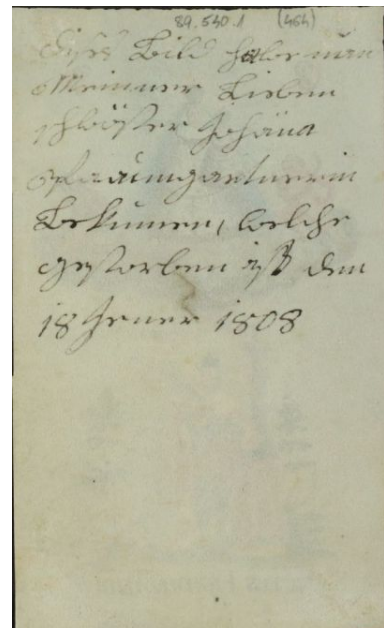 89.540.1 (464)
dises Bild habe nun
Meinner Lieben
schwöster Johäna
Pfraumgartnerin
Bekumen, welche
gestorben ist den
18 Jener 1808